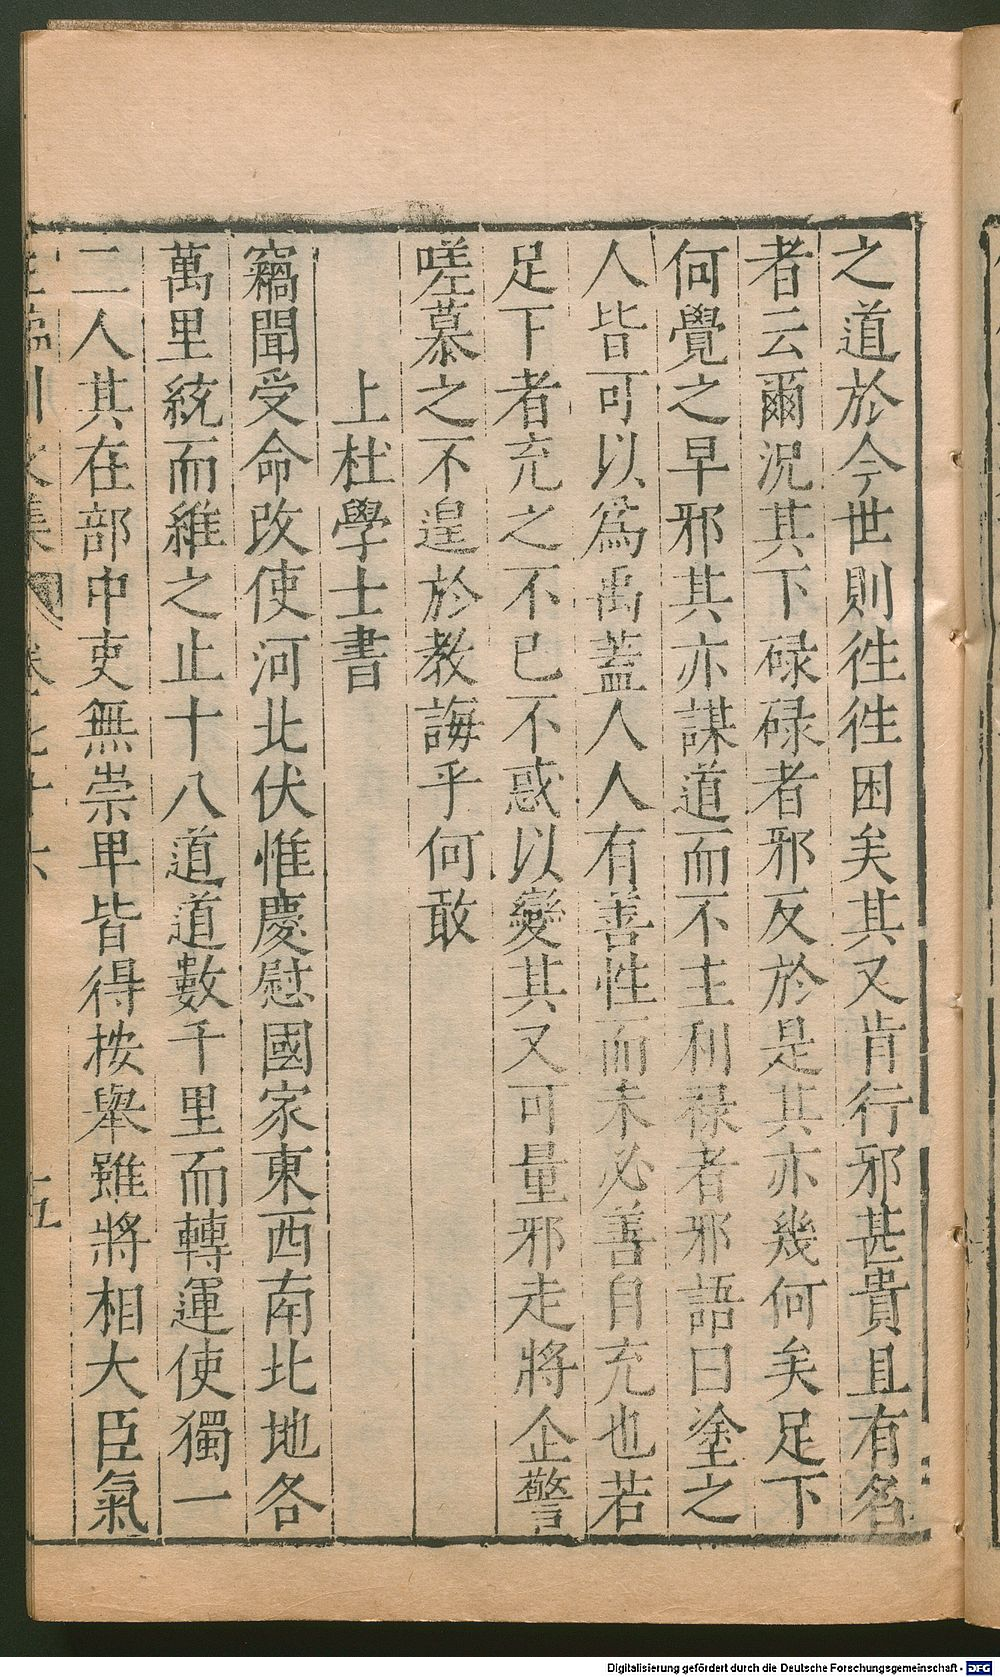 之道於今世則徃徃困矣其又肯行邪甚貴且有名
者云爾况其下碌碌者邪反於是其亦幾何矣足下
何覺之早邪其亦謀道而不主利祿者邪語曰塗之
人皆可以爲禹蓋人人有善性而未必善自充也若
足下者充之不已不惑以變其又可量邪走將企警
嗟慕之不遑於教誨乎何敢
上杜學士書
竊聞受命改使河北伏惟慶慰國家東西南北地各
萬里統而維之止十八道道數千里而轉運使獨一
二人其在部中吏無崇卑皆得按舉雖將相大臣氣
臨川文集 卷七十六 五
Digitalisierung gefördert durch die Deutsche Forschungsgemeinschaft - DFG